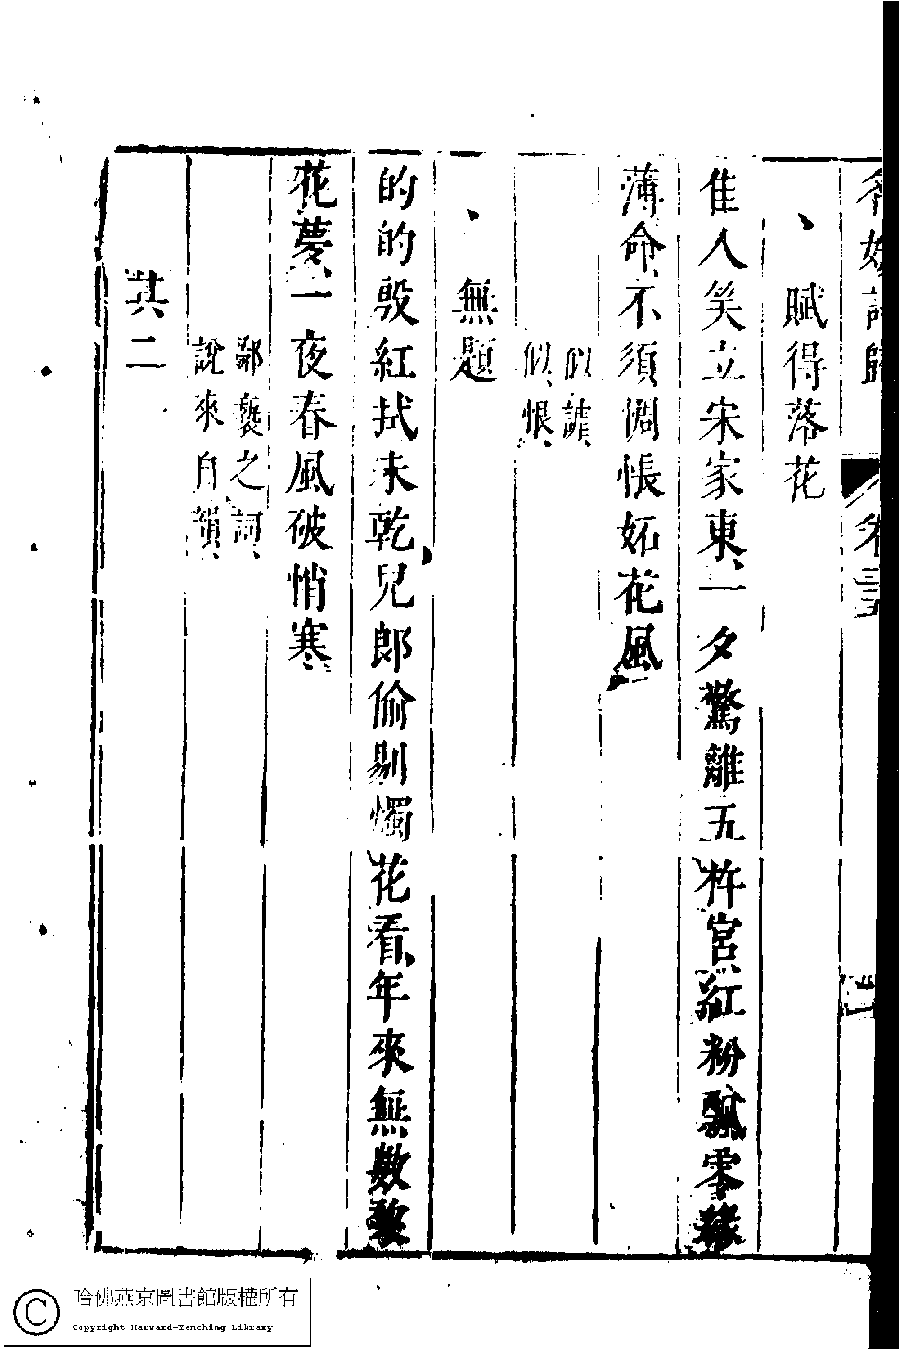 名媛詩歸
賦得落花
佳人笑立宋家東、一夕驚離五柞宮紅粉飄零緣
薄命、不須惆悵妬花風
似謔、
似恨、
無題
的的殷紅拭未乾、兒郎偷剔燭花看、年來無數梨
花夢、一夜春風破悄寒
鄙褻之詞、
說來自韻、
其二
哈佛燕京圖書館版權所有
Copyright Harvard-Yenching Library